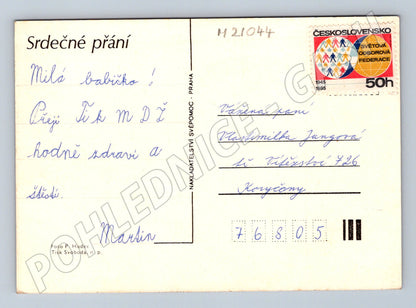 Srdečné přání
M 21044
ČESKOSLOVENSKO
SVĚTOVÁ
ODBOROVÁ
FEDERACE
1945
1985
50h
Milá babičko!
Přeji Ti k MDŽ
hodně zdraví a
štěstí.
Martin
Foto P.
Tisk Svoboda, n. p.
NAKLADATELSTVÍ SVÉPOMOC - PRAHA
Vážená paní
Vlastimilka Jungová
tř. Vítězství 726
Koryčany
76805
POHLEDNICE-G